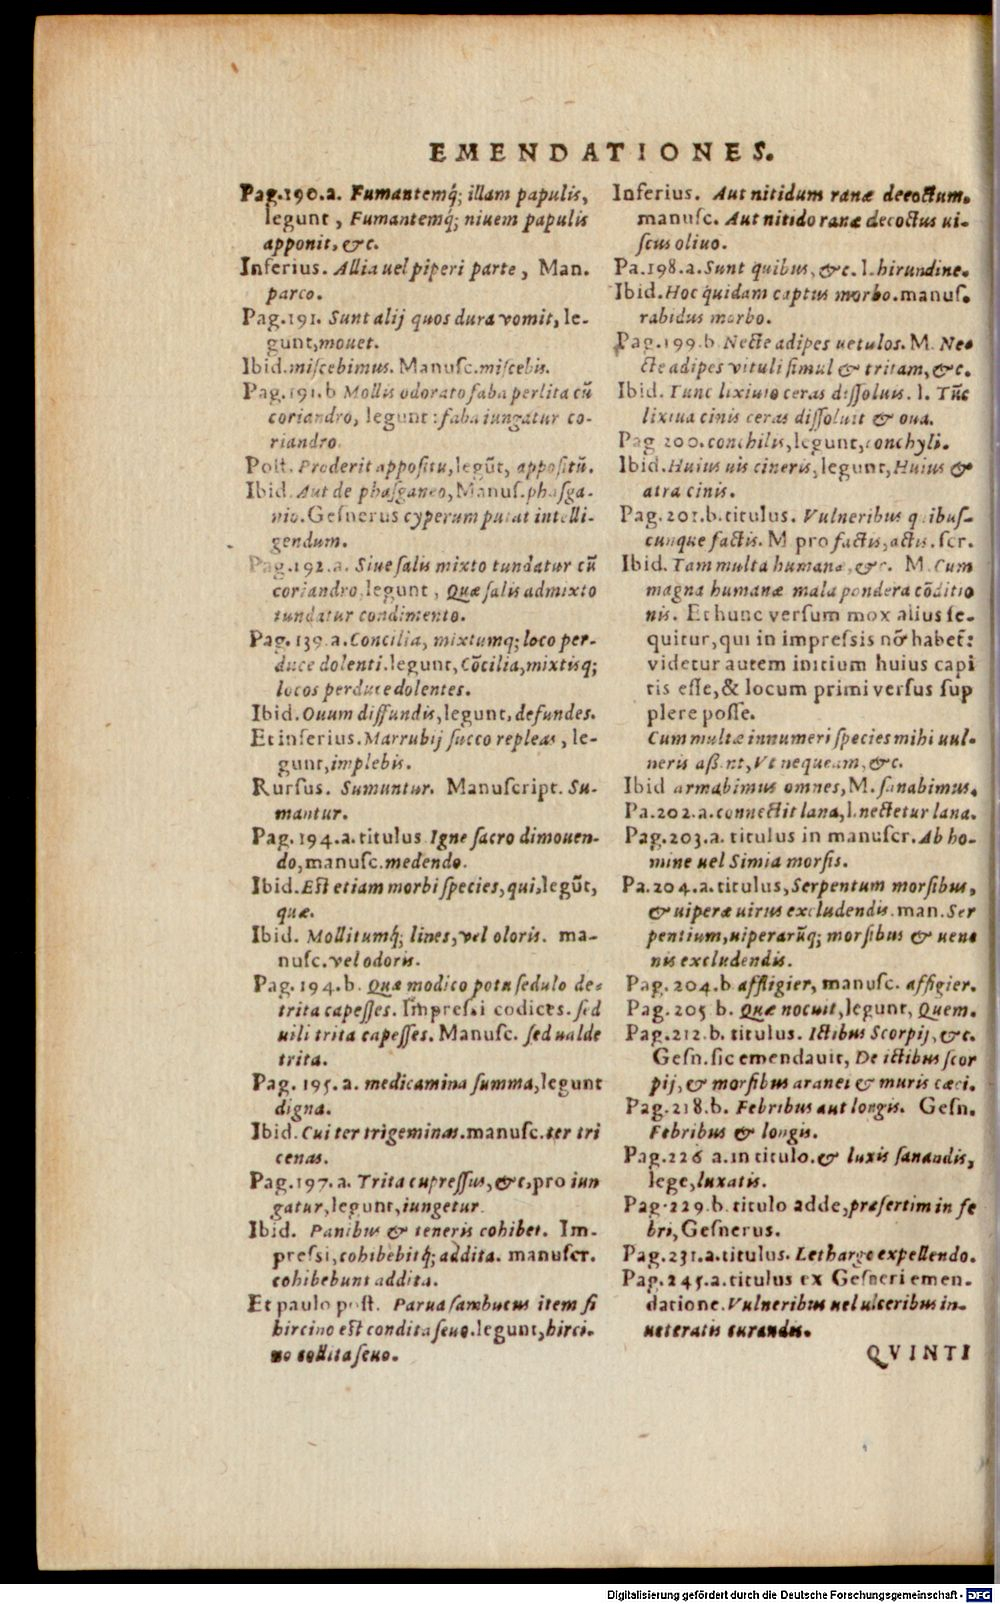 EMENDATIONES.
Pag.190.a. Fumantemq́; illam papulis,
legunt, Fumantemq́; niuem papulis
apponit, &c.
Inferius. Allia uel piperi parte, Man.
parco.
Pag.191. Sunt alij quos dura vomit, le-
gunt, mouet.
Ibid. miscebimus. Manusc. miscebis.
Pag.191.b Mollis odorato faba perlita cū
coriandro, legunt: faba iungatur co-
riandro.
Post. Proderit appositu, legūt, appositū.
Ibid. Aut de phasganeo, Manus. phasga-
nio. Gesnerus cyperum putat intelli-
gendum.
Pag.192.a. Siue salis mixto tundatur cū
coriandro, legunt, Quæ salis admixto
tundatur condimento.
Pag.139.a. Concilia, mixtumq; loco per-
duce dolenti. legunt, Cōcilia, mixtisq;
locos perduce dolentes.
Ibid. Ouum diffundis, legunt, defundes.
Et inferius. Marrubij succo repleas, le-
gunt, implebis.
Rursus. Sumuntur. Manuscript. Su-
mantur.
Pag.194.a. titulus Igne sacro dimouen-
do, manusc. medendo.
Ibid. Est etiam morbi species, qui, legūt,
quæ.
Ibid. Mollitumq́; lines, vel oloris. ma-
nusc. vel odoris.
Pag.194.b. Quæ modico potu sedulo de-
trita capesses. Impressi codices. sed
uili trita capesses. Manusc. sed ualde
trita.
Pag.195.a. medicamina summa, legunt
digna.
Ibid. Cui ter trigeminas. manusc. ter tri
cenas.
Pag.197.a. Trita cupressus, &c, pro iun
gatur, legunt, iungetur.
Ibid. Panibus & teneris cohibet. Im-
pressi, cohibebitq́; addita. manuscr.
cohibebunt addita.
Et paulo post. Parua sambucus item si
hircino est condita seuo. legunt, hirci-
no condita seuo.
Inferius. Aut nitidum ranæ decoctum.
manusc. Aut nitido ranæ decoctus ui-
scus oliuo.
Pa.198.a. Sunt quibus, &c. l. hirundine.
Ibid. Hoc quidam captus morbo. manus.
rabidus morbo.
Pag.199.b Necte adipes uetulos. M. Ne-
cte adipes vituli simul & tritam, &c.
Ibid. Tunc lixiuio ceras dissoluis. l. Tūc
lixiua cinis ceras dissoluit & oua.
Pag 200. conchilis, legunt, conchyli.
Ibid. Huius uis cineris, legunt, Huius &
atra cinis.
Pag.201.b. titulus. Vulneribus quibus-
cunque factis. M pro factis, actis. scr.
Ibid. Tam multa humana, &c. M. Cum
magna humanæ mala pondera cōditio
nis. Et hunc versum mox alius se-
quitur, qui in impressis nō habet:
videtur autem initium huius capi
tis esse, & locum primi versus sup
plere posse.
Cum multæ innumeri species mihi uul-
neris aßint, Vt nequeam, &c.
Ibid armabimus omnes, M. sanabimus.
Pa.202.a. connectit lana, l. nectetur lana.
Pag.203.a. titulus in manuscr. Ab ho-
mine uel Simia morsis.
Pa.204.a. titulus, Serpentum morsibus,
& uiperæ uirus excludendis. man. Ser
pentium, uiperarūq; morsibus & uene
nis excludendis.
Pag.204.b affligier, manusc. affigier.
Pag.205 b. Quæ nocuit, legunt, Quem.
Pag.212.b. titulus. Ictibus Scorpij, &c.
Gesn. sic emendauit, De ictibus scor
pij, & morsibus aranei & muris cæci.
Pag.218.b. Febribus aut longis. Gesn.
Febribus & longis.
Pag.226 a. in titulo. & luxis sanandis,
lege, luxatis.
Pag.229.b. titulo adde, præsertim in fe
bri, Gesnerus.
Pag.231.a. titulus. Lethargo expellendo.
Pag.245.a. titulus ex Gesneri emen-
datione. Vulneribus uel ulceribus in-
ueteratis curandis.
QVINTI
Digitalisierung gefördert durch die Deutsche Forschungsgemeinschaft - DFG